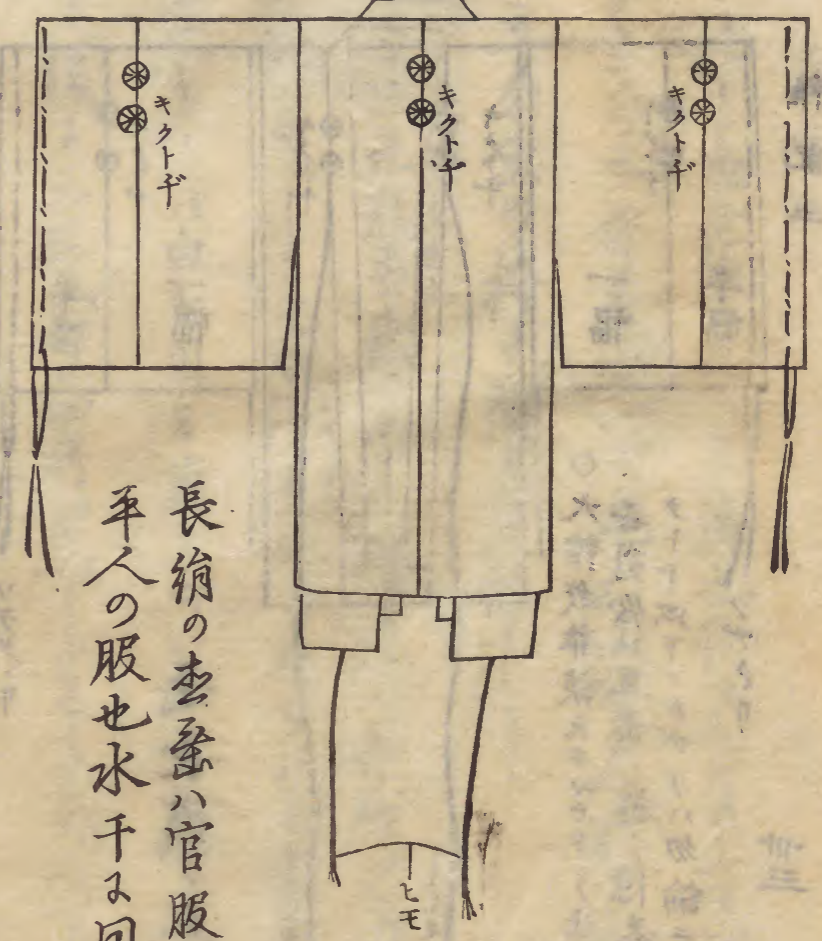 キクトヂ
キクトヂ
キクトヂ
ヒモ
長絹の直垂ハ官服
平人の服也水干に同